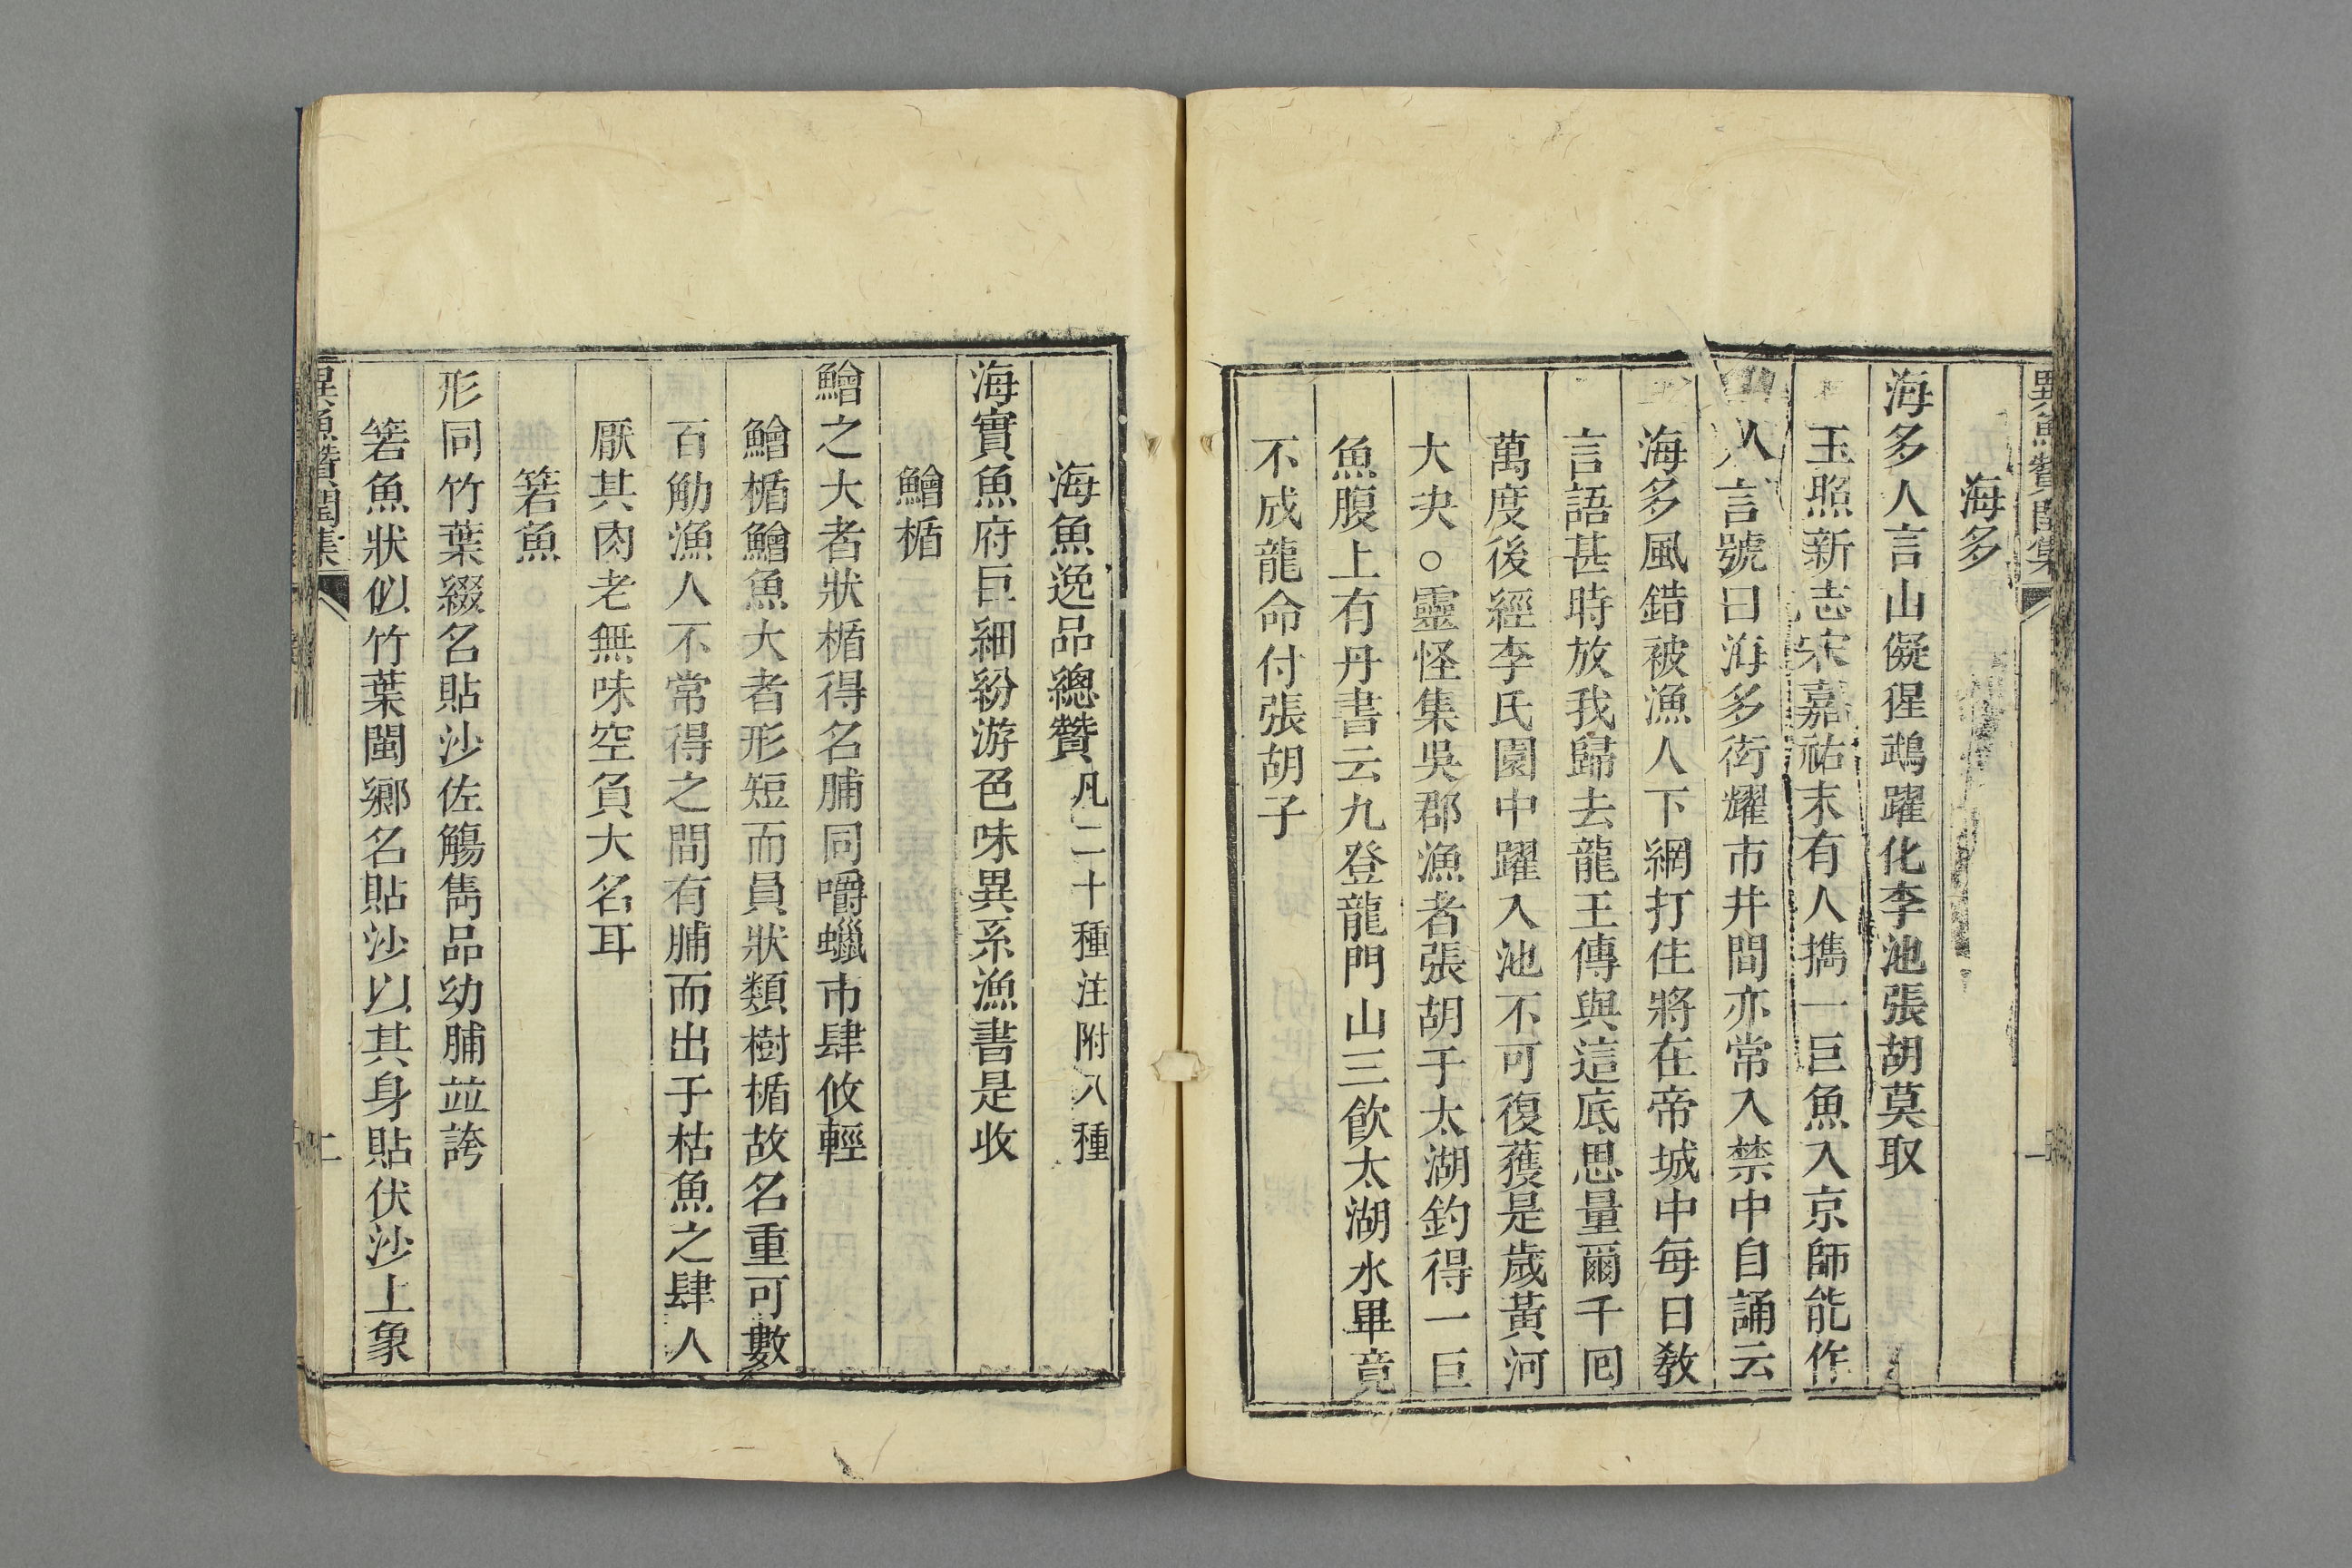 異魚贊閏集
海多
海多人言山儗猩鵡躍化李池張胡莫取
玉照新志宋嘉祐末有人擕一巨魚入京師能作
人言號曰海多衒耀市井間亦常入禁中自誦云
海多風錯被漁人下網打住將在帝城中每日敎
言語甚時放我歸去龍王傳與這底思量爾千囘
萬度後經李氏園中躍入池不可復獲是歲黃河
大决○靈怪集吳郡漁者張胡于太湖釣得一巨
魚腹上有丹書云九登龍門山三飮太湖水畢竟
不成龍命付張胡子
海魚逸品總贊凡二十種注附八種
海實魚府巨細紛游色味異系漁書是收
鱠楯
鱠之大者狀楯得名脯同嚼蠟市肆攸輕
鱠楯鱠魚大者形短而員狀類樹楯故名重可數
百觔漁人不常得之間有脯而出于枯魚之肆人
厭其肉老無味空負大名耳
箬魚
形同竹葉綴名貼沙佐觴雋品幼脯並誇
箬魚狀似竹葉閩鄉名貼沙以其身貼伏沙上象
異魚贊閏集
二